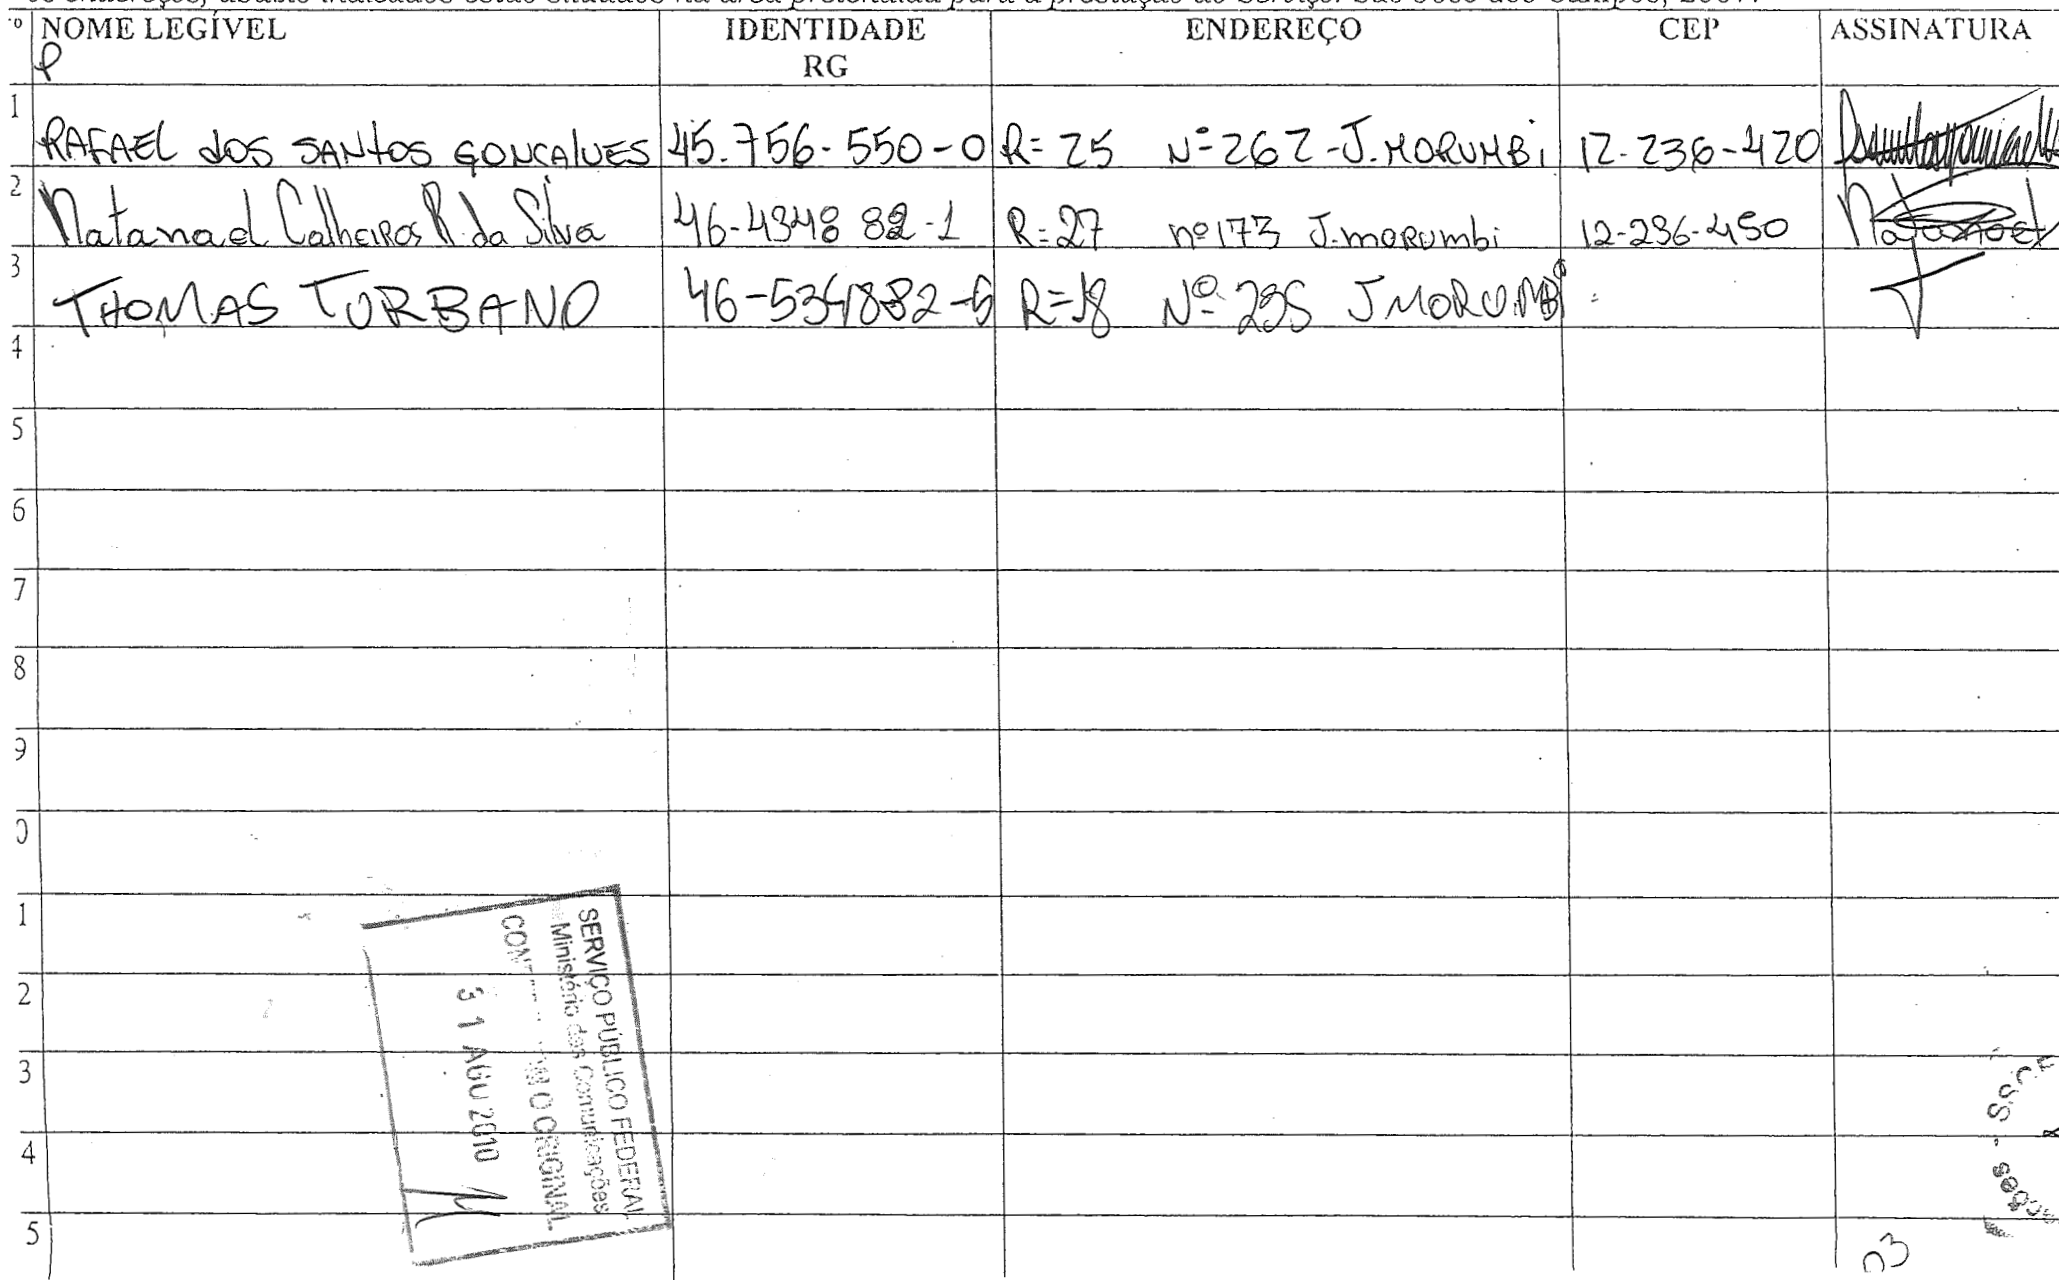 NOME LEGÍVEL IDENTIDADE RG ENDEREÇO CEP ASSINATURA
P
1 RAFAEL dOS SANtOS GONCALVES 45.756-550-0 R= 25 Nº 262 -J. MORUMBi 12-236-420
2 Natanael Calheiros R. da Silva 46-4348 82-1 R=27 nº 173 J. morumbi 12-236-450 Natanael
3 THOMAS TURBANO R=18 Nº 235 J MORUMBi
4
5
6
7
8
9
0
1
2
3
4
5
SERVIÇO PÚBLICO FEDERAL
Ministério das Comunicações
O ORIGINAL
31 AGO 2010
03